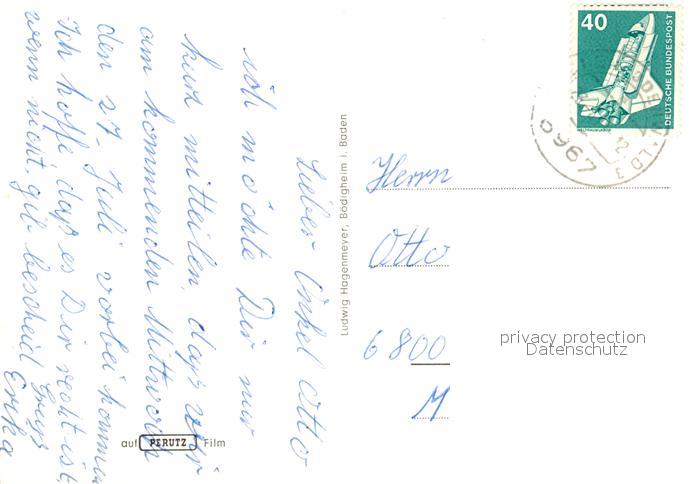 Lieber Onkel Otto
ich möchte Dir nur
kurz mitteilen dass wir
am kommenden Mittwoch
den 27. Juli vorbei kommen
Ich hoffe daß es Dir recht ist,
wenn nicht gib bescheid Gruss
Erika
Ludwig Hagenmeyer, Bödigheim i. Baden
auf PERUTZ Film
40
DEUTSCHE BUNDESPOST
WELTRAUMLABOR
6967
Herrn
Otto
6800
M
privacy protection
Datenschutz